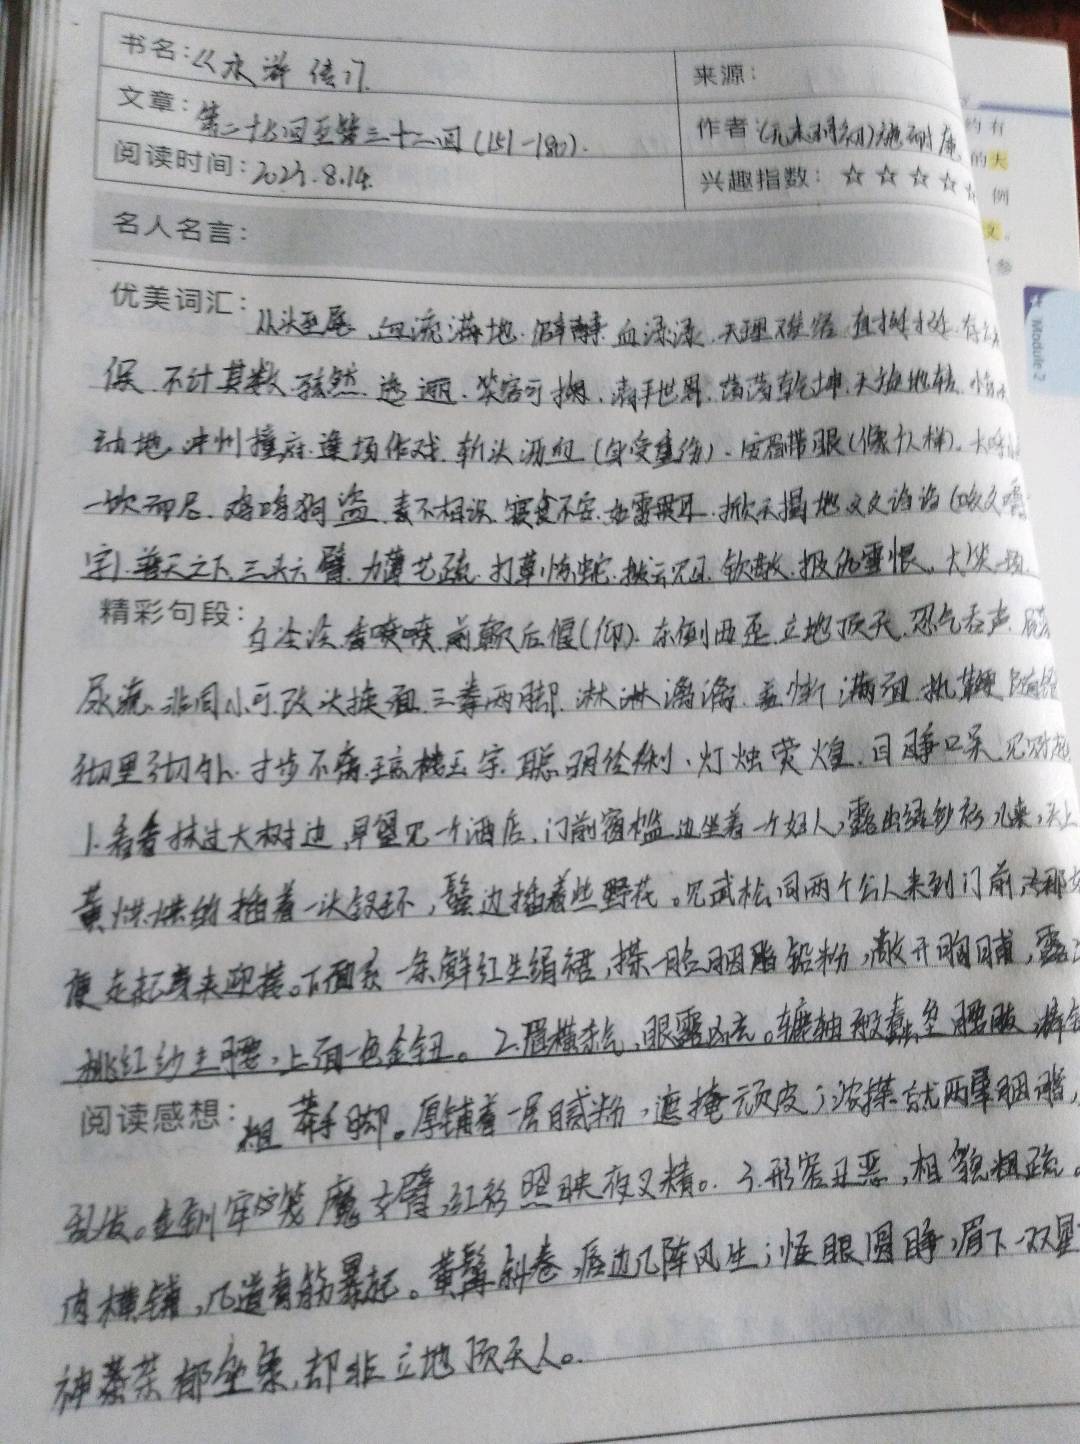 书名：《水浒传》
来源：
文章：第二十 回至第三十二回（151-180）.
作者：（元末明初）施耐庵
阅读时间：202 .8.14.
兴趣指数：☆☆☆☆☆
名人名言：
优美词汇：从头至尾 血流满地. 血渌渌. 天理难容 直挺挺.
保 不计其数. 透逦. 笑容可掬. 清平世界. 荡荡乾坤. 天旋地转.
动地 冲州撞府. 逢场作戏. 斩头沥血 (身受重伤). 安眉带眼(像个人样).
一饮而尽. 鸡鸣狗盗 素不相识. 寝食不安. 如雷贯耳. 掀天揭地 文文诌诌 (咬文嚼
字). 普天之下. 三头六臂. 力薄艺疏. 打草惊蛇. 拨云见日. 钦敬. 报仇雪恨.
精彩句段：白泠泠. 香喷喷. 前颠后偃(仰). 东倒西歪. 立地顶天. 忍气吞声.
尿流. 非同小可. 改头换面. 三拳两脚. 淋淋漓漓. 羞惭满面. 执鞭
彻里彻外. 寸步不离. 琼楼玉宇. 聪明伶俐、灯烛荧煌. 目睁口呆
1.看看抹过大树边，早望见一个酒店，门前窗槛边坐着一个妇人，露出绿纱衫儿来，头上
黄烘烘的插着一头钗环，鬓边插着些野花。见武松同两个公人来到门前，那妇
便走起身来迎接。下面系一条鲜红生绢裙，搽一脸胭脂铅粉，敞开胸脯，露
桃红纱主腰，上面一色金钮。2.眉横杀气，眼露凶光。辘轴般蠢坌腰肢，棒
阅读感想：粗莽手脚。厚铺着一层腻粉，遮掩顽皮；浓搽就两晕胭脂，
乱发。金钏牢笼魔女臂，红衫照映夜叉精。3.形容丑恶，相貌粗疏。
肉横铺，几道青筋暴起。黄髯斜卷，唇边几阵风生；怪眼圆睁，眉下一双星
神荼郁垒象，却非立地顶天人。
Module 2